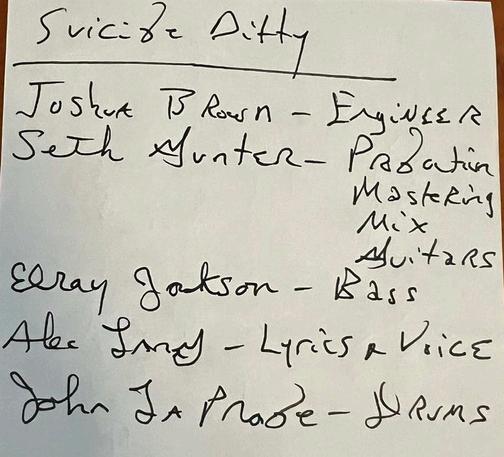 Suicide Ditty
Joshua Brown - Engineer
Seth Gunter - Production
Mastering
Mix
Guitars
Elray Jackson - Bass
Alec - Lyrics & Voice
John La Prade - Drums